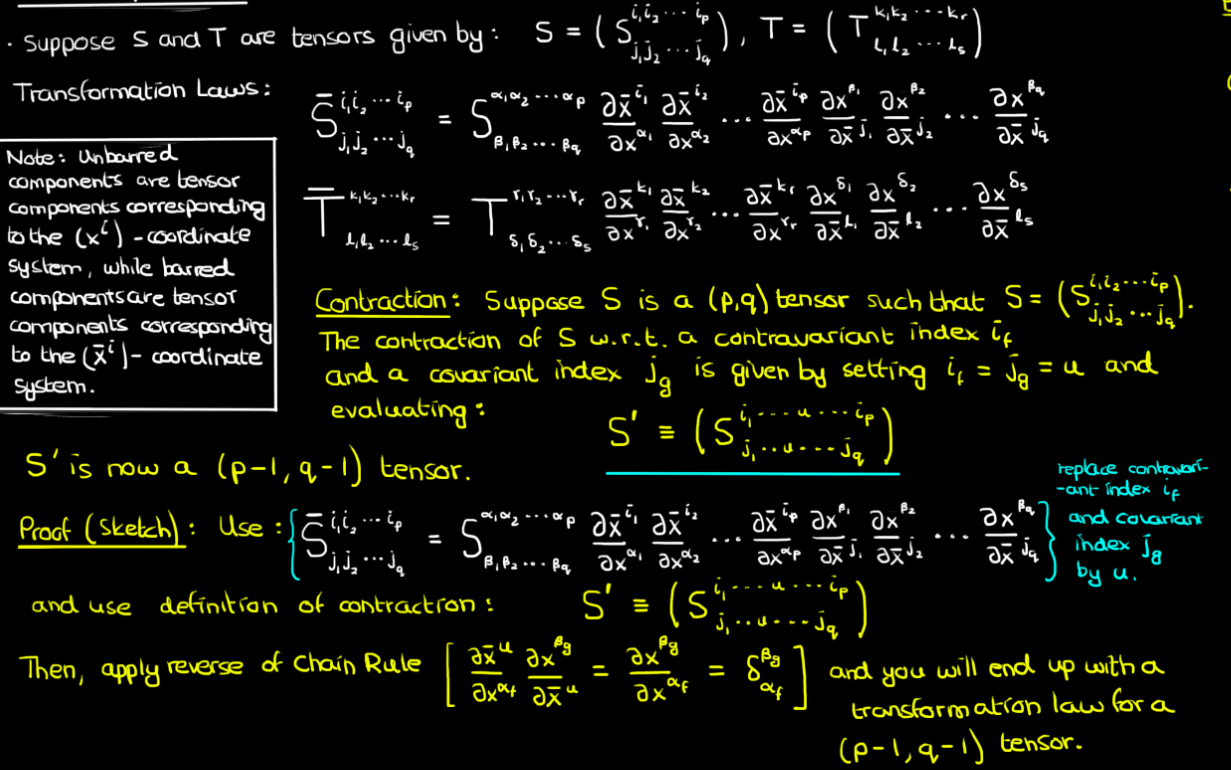 · Suppose S and T are tensors given by: S = (S^{i₁i₂⋯i_p}_{j₁j₂⋯j_q}), T = (T^{k₁k₂⋯k_r}_{l₁l₂⋯l_s})
Transformation Laws: S̄^{i₁i₂⋯i_p}_{j₁j₂⋯j_q} = S^{α₁α₂⋯α_p}_{β₁β₂⋯β_q} ∂x̄^{i₁}/∂x^{α₁} ∂x̄^{i₂}/∂x^{α₂} ⋯ ∂x̄^{i_p}/∂x^{α_p} ∂x^{β₁}/∂x̄^{j₁} ∂x^{β₂}/∂x̄^{j₂} ⋯ ∂x^{β_q}/∂x̄^{j_q}
T̄^{k₁k₂⋯k_r}_{l₁l₂⋯l_s} = T^{r₁r₂⋯r_r}_{δ₁δ₂⋯δ_s} ∂x̄^{k₁}/∂x^{r₁} ∂x̄^{k₂}/∂x^{r₂} ⋯ ∂x̄^{k_r}/∂x^{r_r} ∂x^{δ₁}/∂x̄^{l₁} ∂x^{δ₂}/∂x̄^{l₂} ⋯ ∂x^{δ_s}/∂x̄^{l_s}
Note: Unbarred
components are tensor
components corresponding
to the (x^i) -coordinate
system, while barred
components are tensor
components corresponding
to the (x̄^i)- coordinate
system.
Contraction: Suppose S is a (p,q) tensor such that S = (S^{i₁i₂⋯i_p}_{j₁j₂⋯j_q}).
The contraction of S w.r.t. a contravariant index i_f
and a covariant index j_g is given by setting i_f = j_g = u and
evaluating:
S' ≡ (S^{i₁⋯u⋯i_p}_{j₁⋯u⋯j_q})
S' is now a (p-1, q-1) tensor.
Proof (Sketch): Use: {S̄^{i₁i₂⋯i_p}_{j₁j₂⋯j_q} = S^{α₁α₂⋯α_p}_{β₁β₂⋯β_q} ∂x̄^{i₁}/∂x^{α₁} ∂x̄^{i₂}/∂x^{α₂} ⋯ ∂x̄^{i_p}/∂x^{α_p} ∂x^{β₁}/∂x̄^{j₁} ∂x^{β₂}/∂x̄^{j₂} ⋯ ∂x^{β_q}/∂x̄^{j_q}}
replace contravari-
-ant index i_f
and covariant
index j_g
by u.
and use definition of contraction: S' ≡ (S^{i₁⋯u⋯i_p}_{j₁⋯u⋯j_q})
Then, apply reverse of Chain Rule [∂x̄^u/∂x^{α_f} ∂x^{β_g}/∂x̄^u = ∂x^{β_g}/∂x^{α_f} = δ^{β_g}_{α_f}] and you will end up with a
transformation law for a
(p-1, q-1) tensor.